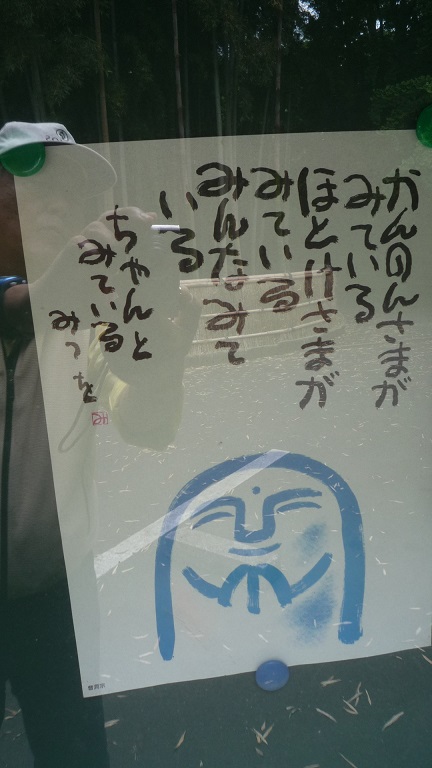 かんのんさまが
みている
ほとけさまが
みている
みんなみて
いる
ちゃんと
みている
みつを